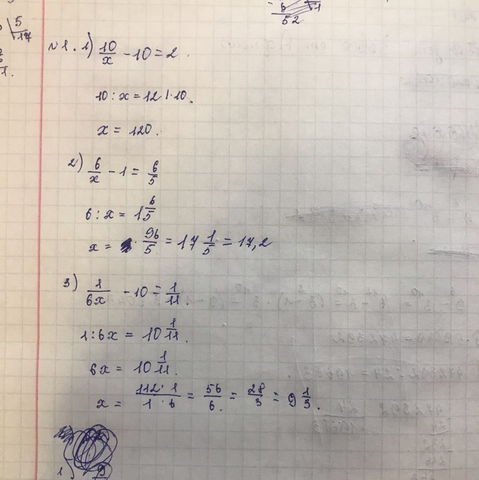 5
17
52
№1. 1) 10/x - 10 = 2
10 : x = 12 | · 10.
x = 120.
2) 6/x - 1 = 6/5
6 : x = 1 6/5
x = 96/5 = 17 1/5 = 17,2
3) 1/6x - 10 = 1/11.
1 : 6x = 10 1/11.
6x = 10 1/11.
x = 112 · 1/1 · 6 = 56/6. = 28/3 = 9 1/3.
1)